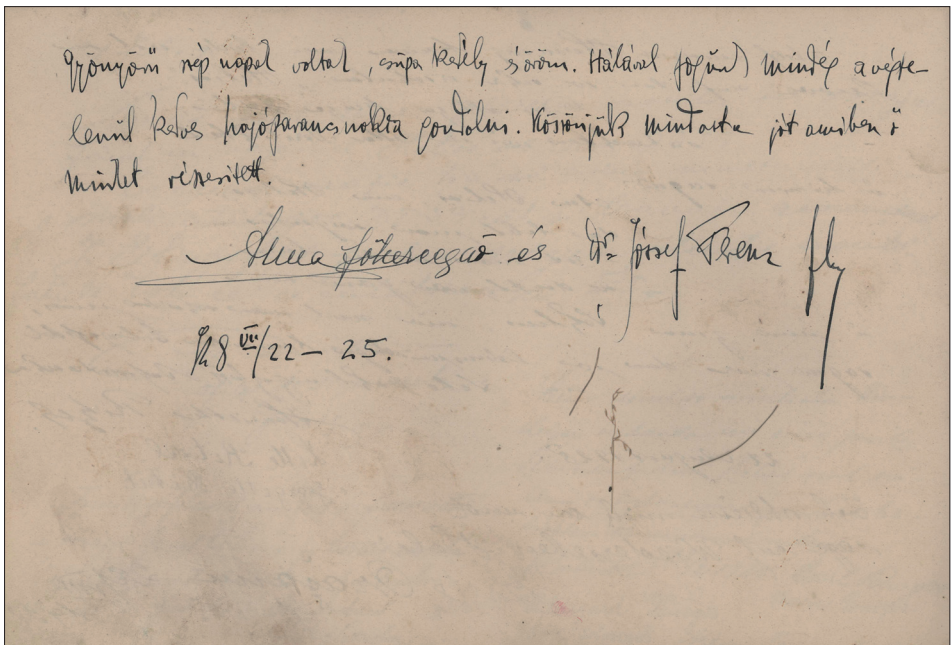 Gyönyörű szép napok voltak, csupa kedély és öröm. Hálával fogunk mindég a végte-
lenül kedves hajóparancsnokra gondolni. Köszönjük mindazt a jót amiben ő
minket részesített.
Anna főhercegnő és Dr József Ferenc fhg
928 VII/22 – 25.